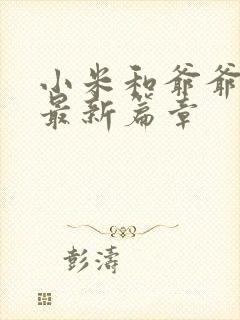 小米和爷爷
最新篇章
彭涛